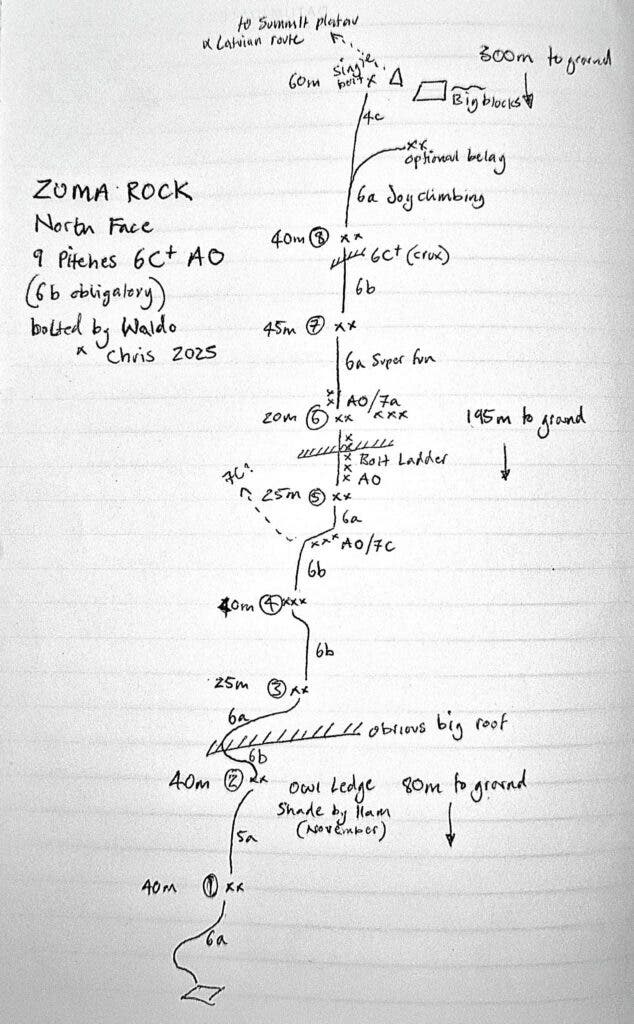 to Summit plateau
& Latvian route
300m to ground
single
60m bolt x
Big blocks
4c
xx
optional belay
6a Joy climbing
ZUMA ROCK
North Face
9 Pitches 6C+ AO
(6b obligatory)
bolted by Waldo
& Chris 2025
40m 8 xx
6C+ (crux)
6b
45m 7 xx
6a Super fun
xx
xx AO/7a
20m 6 xx xxx
195m to ground
x
x
x Bolt Ladder
x
x AO
7C?
25m 5 xx
6a
xxx AO/7C
6b
40m 4 xxx
6b
25m 3 xx
6a
obvious big roof
6b
40m 2 xx
Owl Ledge 80m to ground
Shade by 11am
(November)
5a
40m 1 xx
6a